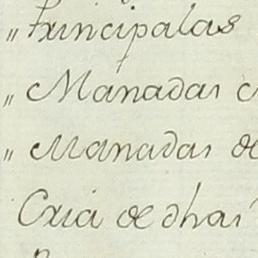 " Principalas
" Manadas
" Manadas de
Cria de dhas